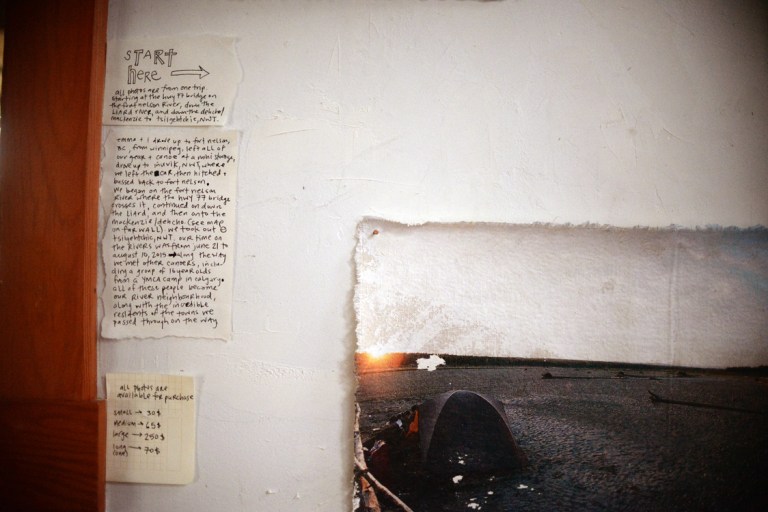 START
here →
all photos are from one trip
starting at the hwy 77 bridge on
the fort nelson River, down the
LIARD RIVER, and down the dehcho/
mackenzie to tsiigehtchic, NWT.
emma + I drove up to fort nelson,
BC, from winnipeg, left all of
our gear + canoe at a mini storage,
drove up to inuvik, NWT, where
we left the CAR, then hitched +
bussed back to fort nelson.
we began on the fort nelson
River where the hwy 77 bridge
crosses it, continued on down
the liard, and then onto the
mackenzie/dehcho (see map
on far wall) we took out @
tsiigehtchic, NWT. our time on
the Rivers was from june 21 to
august 10, 2015 along the way
we met other canoers, inclu-
ding a group of 16 year olds
from a YMCA camp in calgary.
all of these people became
our River neighbourhood,
along with the incredible
residents of the towns we
passed through on the way
all photos are
available for purchase
small → 30$
medium → 65$
large → 250$
long → 70$